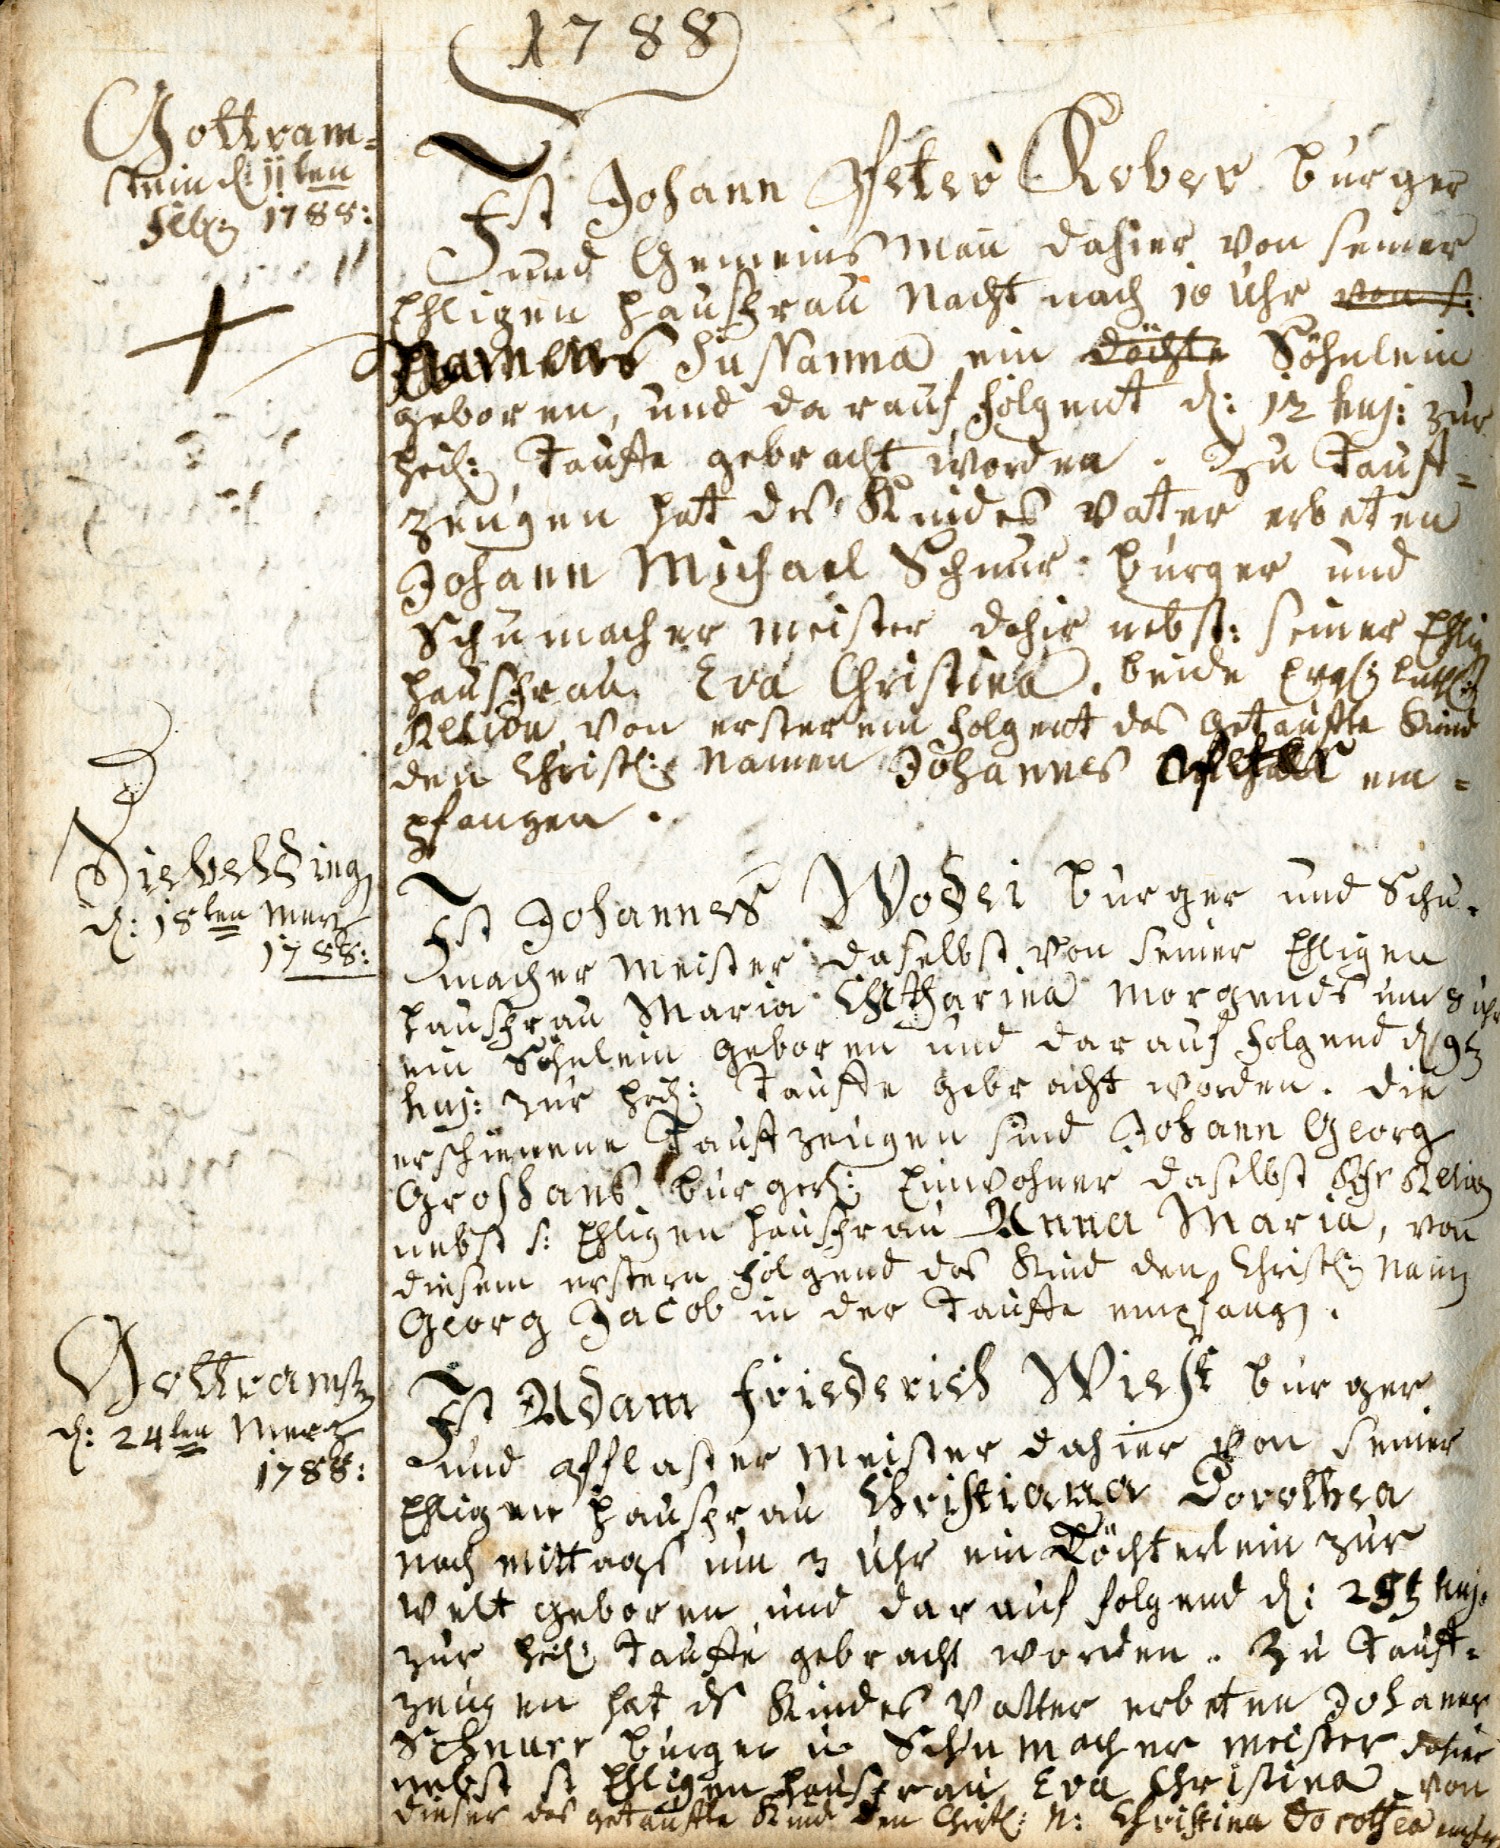 1788
Gottram=
stein d: 11ten
Feb: 1788:
Ist Johann Peter Rober burger
und Gemeins Mañ dahier von seiner
Ehligen haußfrau Nacht nach 10 Uhr von s:
Namens Sussanna ein döchte Söhnlein
geboren, und darauf folgent d: 12 huj: zur
heil: Tauffe gebracht worden. Zu Tauff=
zeugen hat des Kindes Vater erbeten
Johann Michael Schnur burger und
Schumacher meister dahir nebst: seiner Ehlig
haußfrau Eva Christina, beide Evg: Luth:
Religion von ersterem folgent das getauffte Kind
den Christl: Namen Johannes em=
pfangen.
Diebelding
d: 18ten Mertz
1788:
Ist Johannes Wodei burger und Schu=
macher Meister daselbst von seiner Ehligen
haußfrau Maria Chatharina morgends um 8 uhr
ein Söhnlein geboren und darauf folgend d 19t
huj: zur heil: Tauffe gebracht worden. die
erschienene Tauffzeugen sind Johann Georg
Groshans burgerl: Einwohner daselbst Relion
nebst s: Ehligen haußfrau Anna Maria, von
diesem erstern folgend das Kind den Christl: Namen
Georg Jacob in der Tauffe empfangen.
Gottramst
d: 24ten Mertz
1788:
Ist Adam Friederich Wiest burger
und Pflaster Meister dahier von seiner
Ehligen haußfrau Christiana Dorothea
nach mittags um 3 Uhr ein Töchterlein zur
welt geboren und darauf folgend d: 25t huj:
zur heil: Tauffe gebracht worden. Zu Tauff=
zeugen hat ds Kindes Vatter erbeten Johannes
Schnurr burger u Schumacher meister dahier
nebst sr Ehligen haußfrau Eva Christina, von
dieser das getauffte Kind den Christl: N: Christina Dorothea